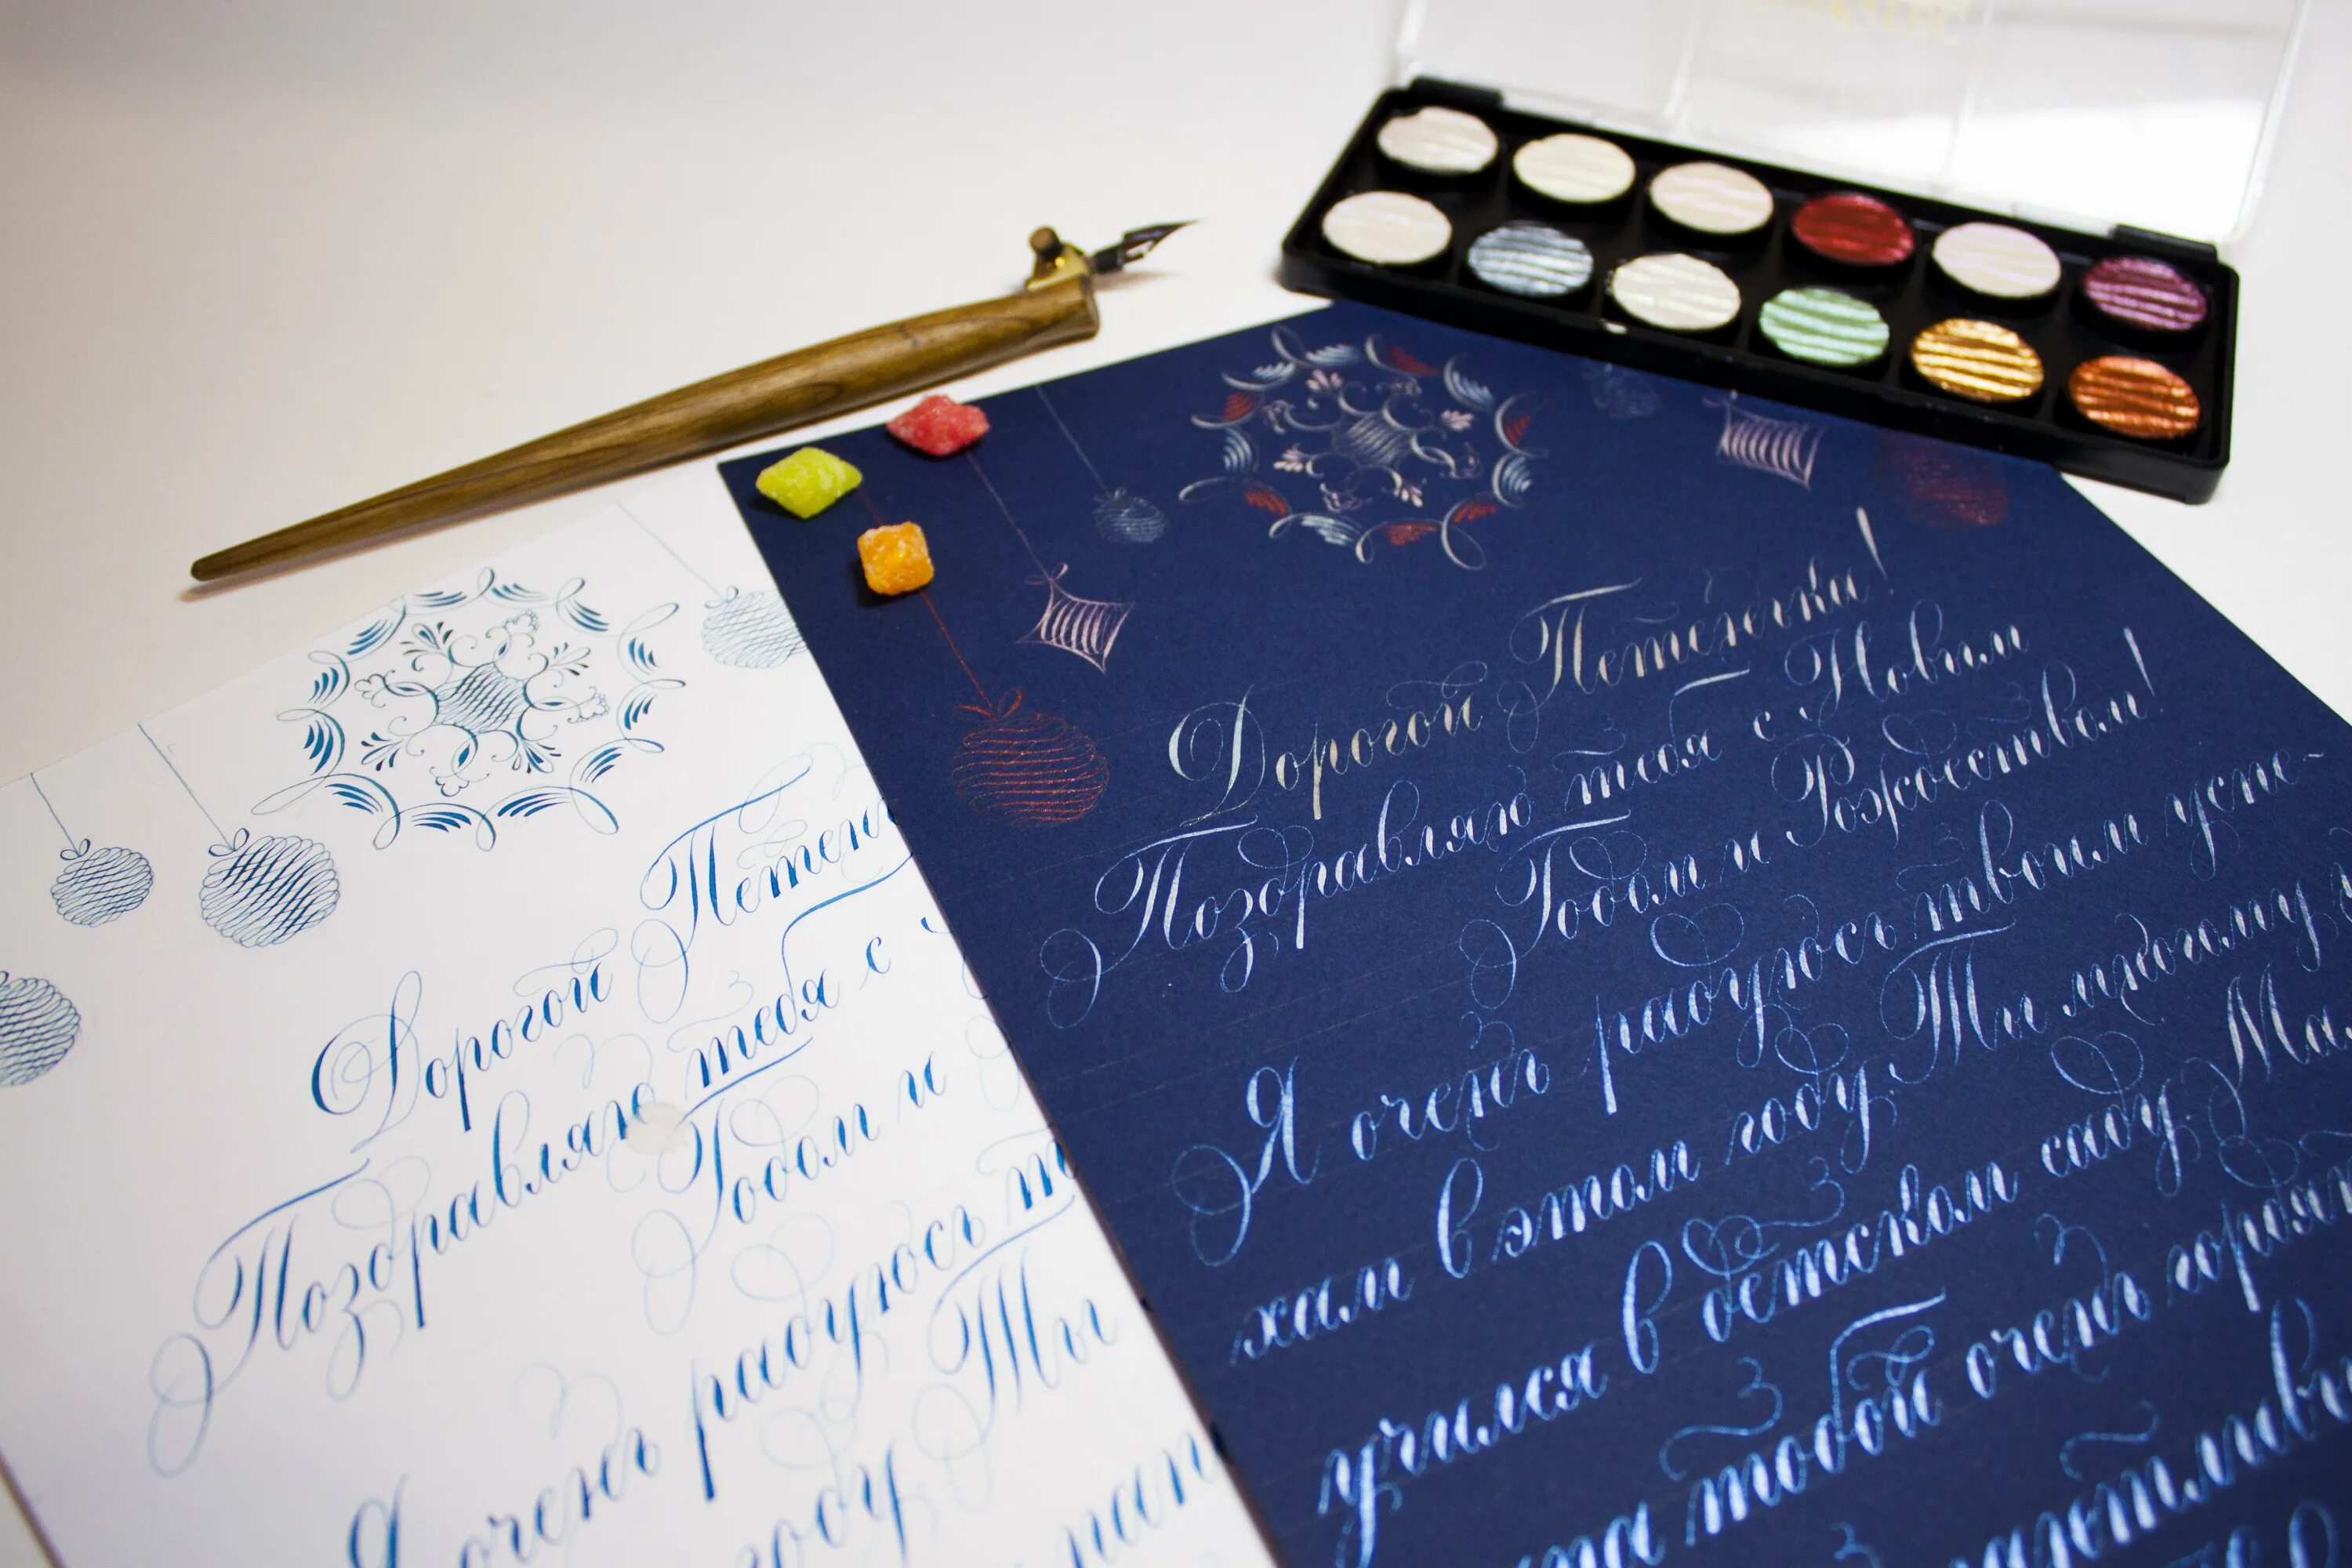 Дорогой Петенька!
Поздравляю тебя с Новым
Годом и Рождеством!
Я очень радуюсь твоим успе-
хам в этом году. Ты многому
учился в детском саду. Ма
тобой очень гордят
Дорогой Петень
Поздравляю тебя с
Годом и
Я очень радуюсь т
году Ты
пап